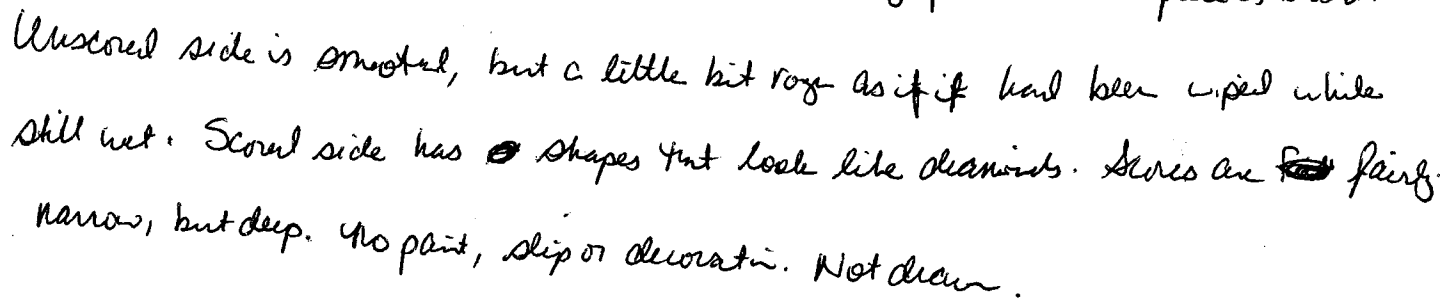 Unscored side is smooth, but a little bit rough as if it had been wiped while
still wet. Scored side has shapes that look like diamonds. Scores are fairly
narrow, but deep. No paint, slip or decoration. Not drawn.